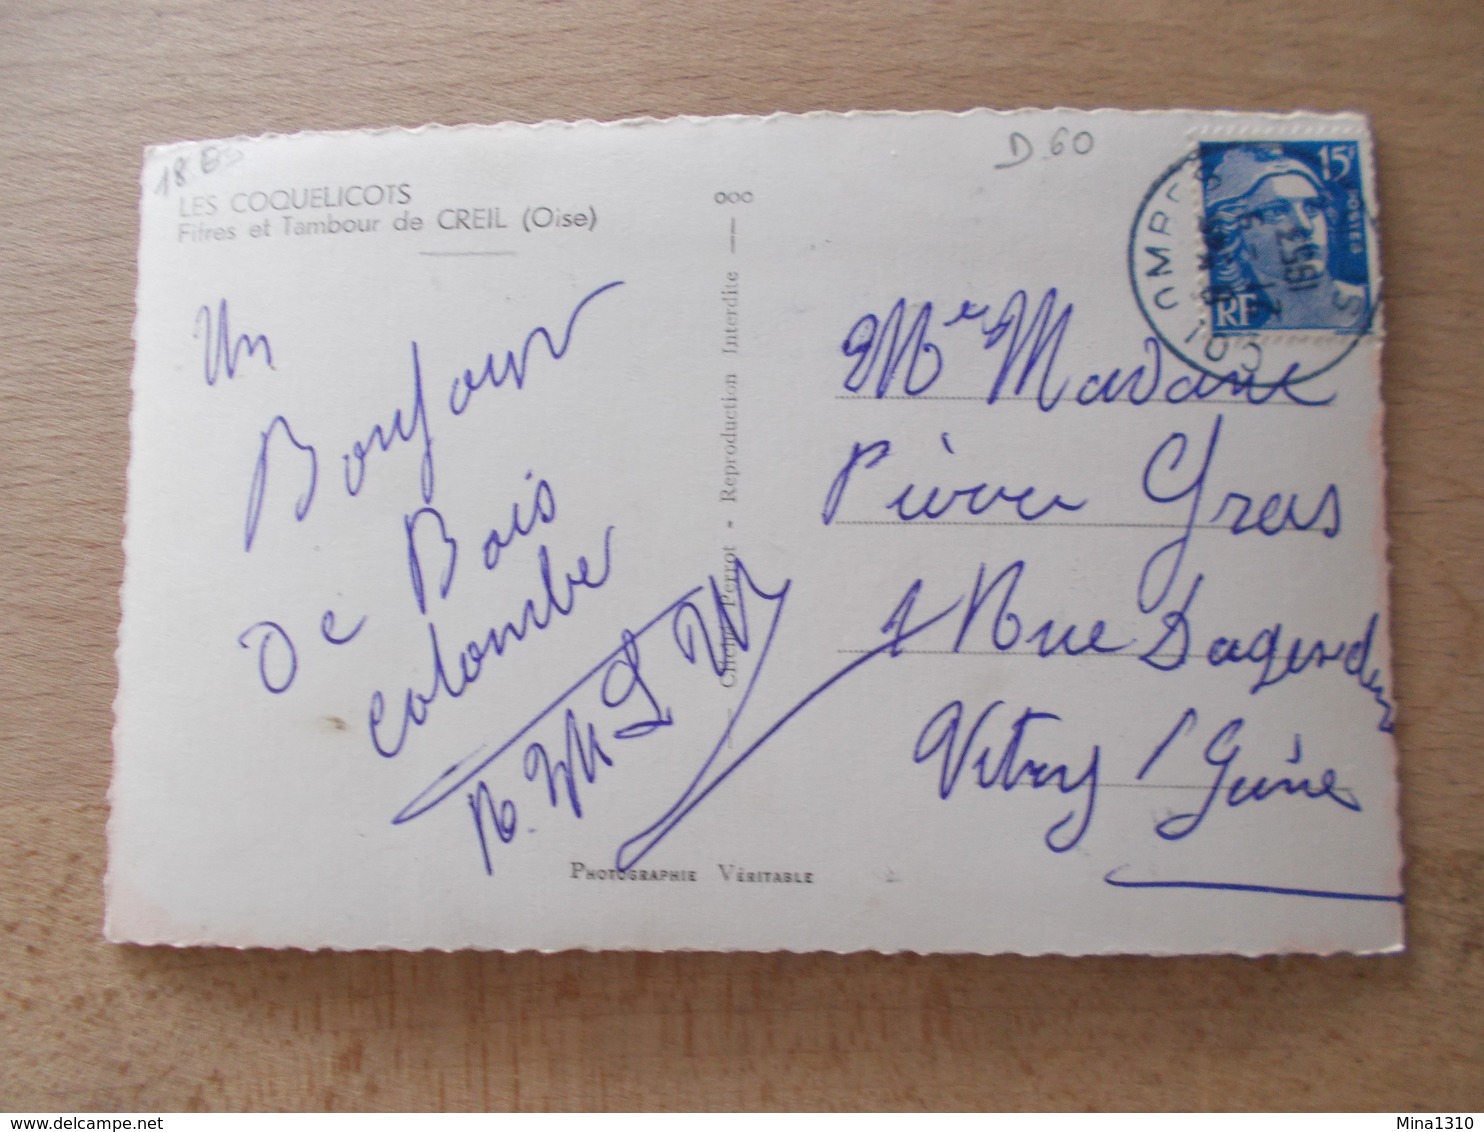 18
D.60
LES COQUELICOTS
Fifres et Tambour de CREIL (Oise)
ooo
15F
POSTES
RF
1953
COLOMBES
Un
Bonjour
de Bois
colombe
Cliché Perrot - Reproduction Interdite
Mr Madame
Pierre Gras
1 Rue
Vitry s/ Seine
PHOTOGRAPHIE VÉRITABLE
delcampe.net
Mina1310